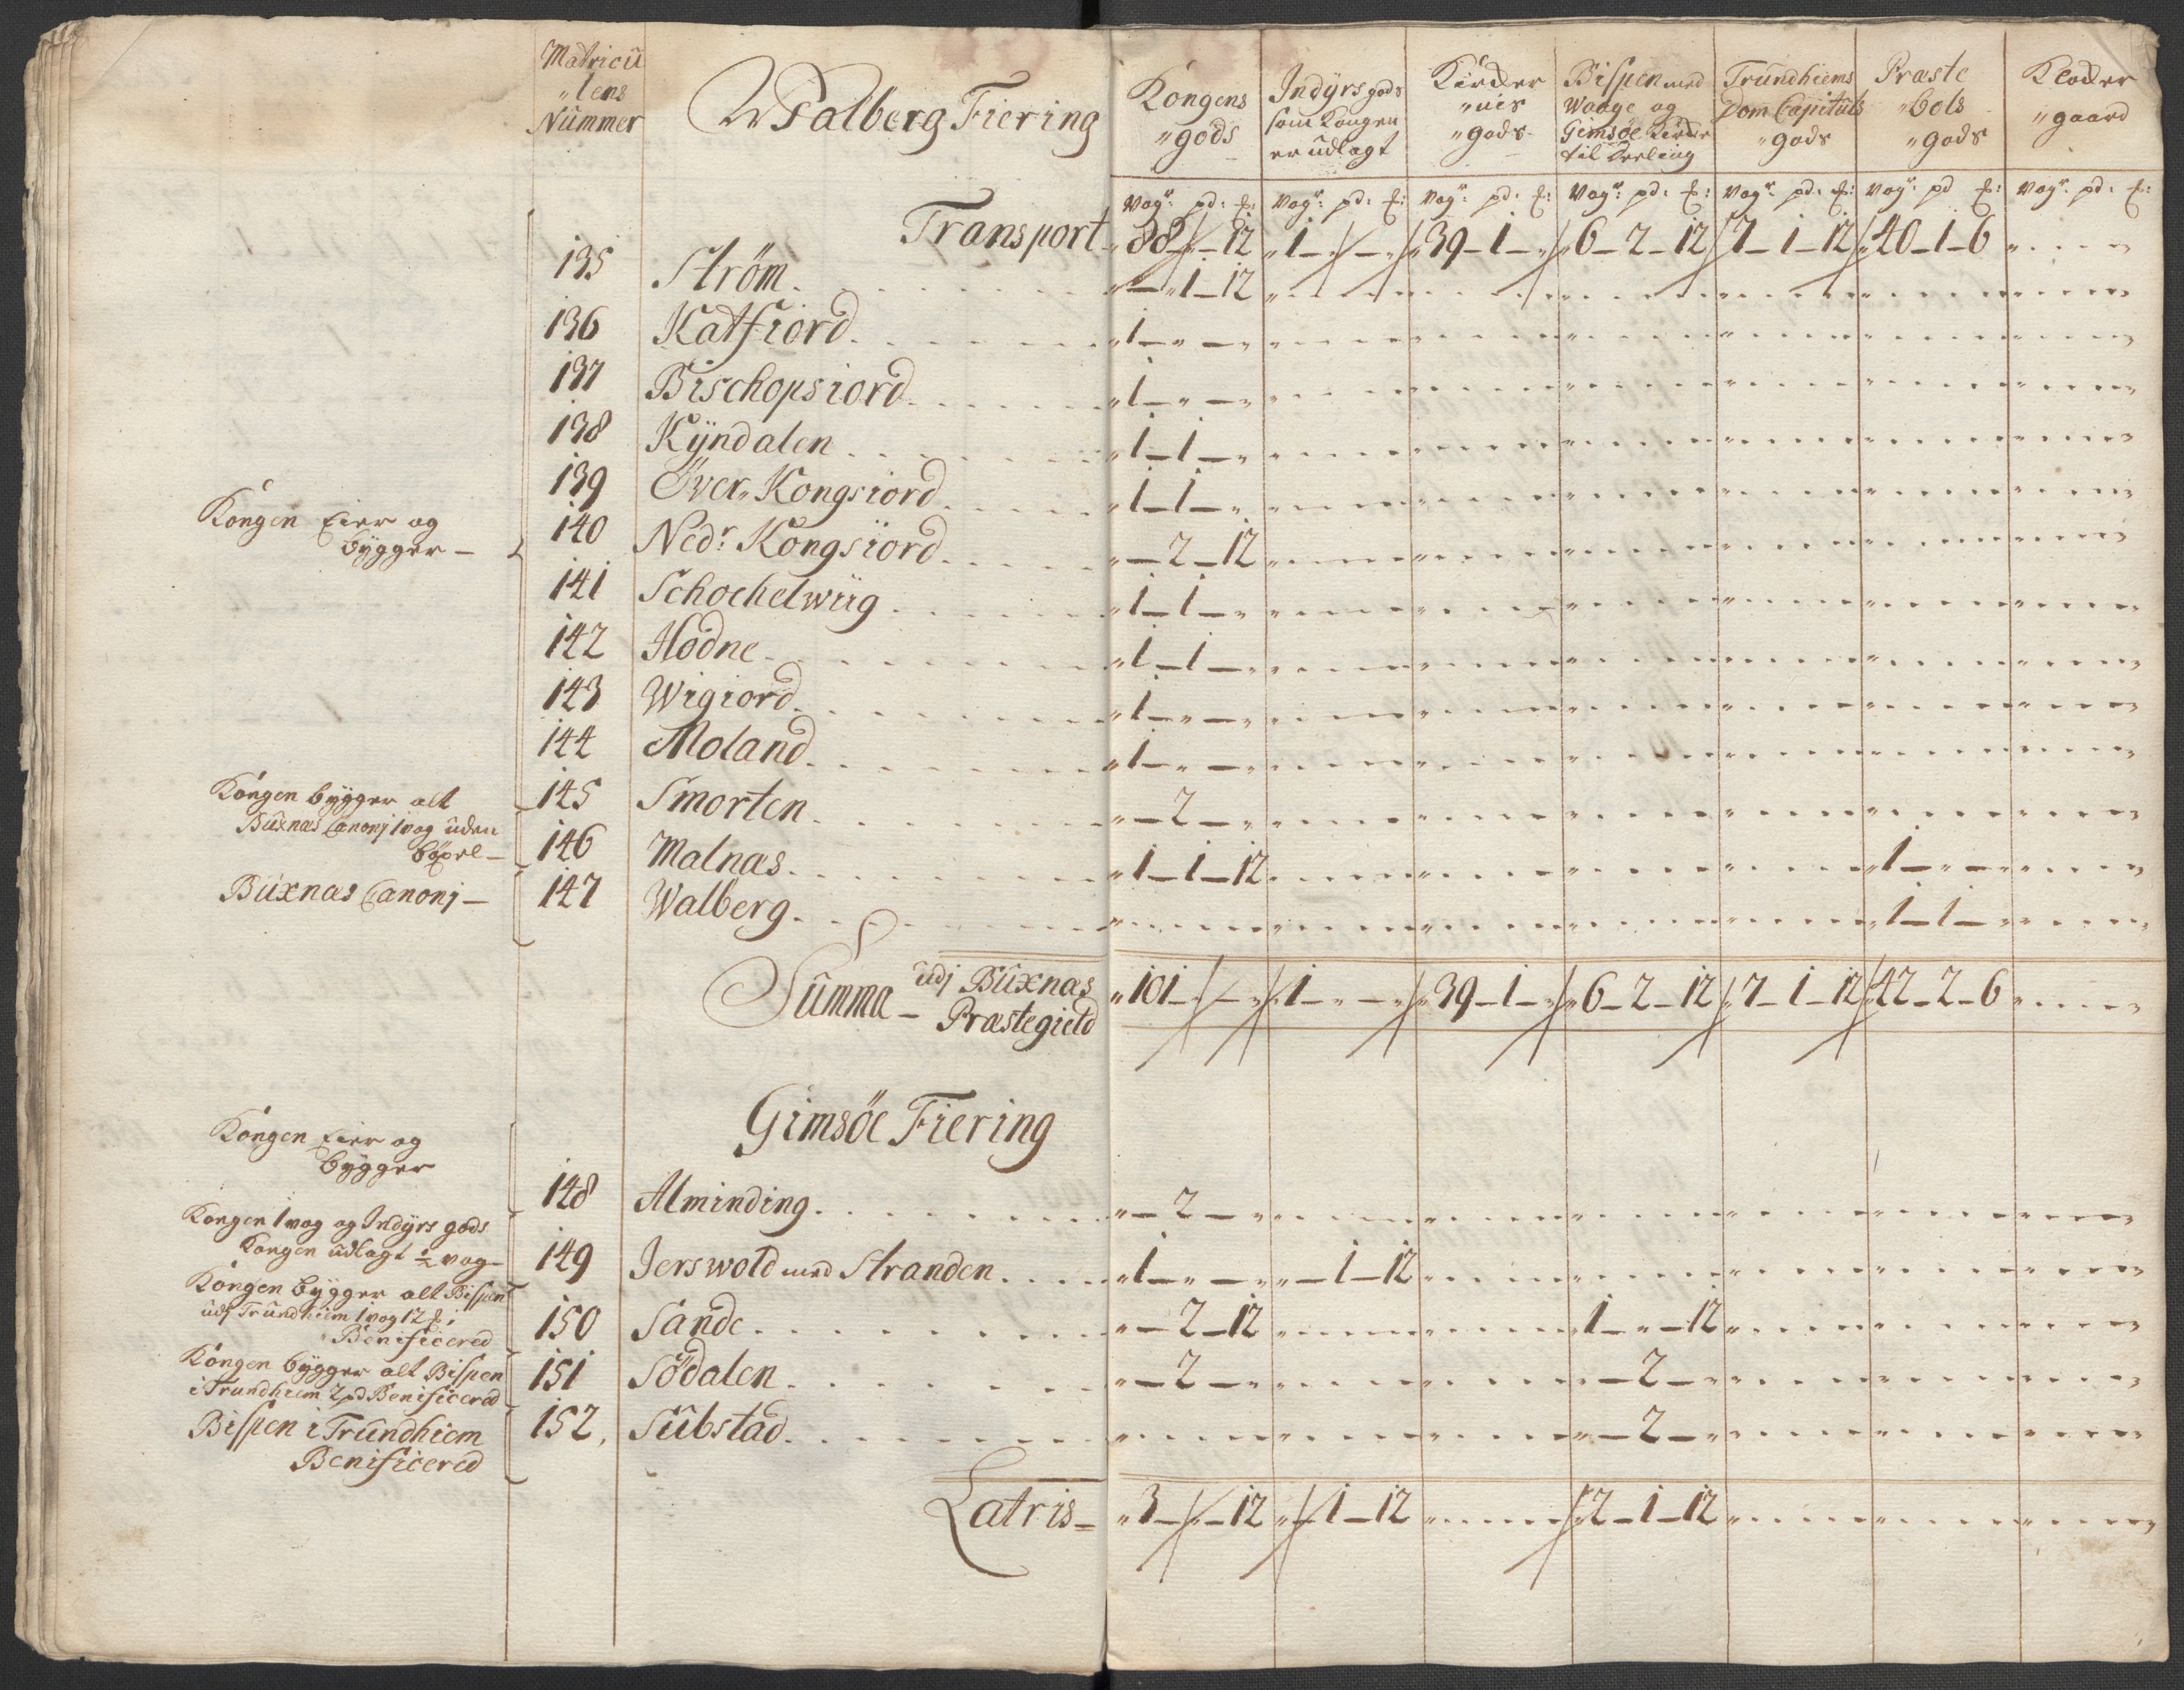 Matricu
"lens
Nummer
Walberg Fiering
Kongens
"gods
Indÿrs gods
som Kongen
er udlagt
Kircker
"nes
"gods
Bispen med
Waage og
Gimsöe Kircke
til deeling
Trundhiems
Dom Capituls
"gods
Præste
"bols
"gods
Klocker
"gaard
Vogr: pd: ℔: Vogr: pd: ℔: Vogr: pd: ℔: Vogr: pd: ℔: Vogr: pd: ℔: Vogr: pd ℔: Vogr: pd: ℔:
Transport 88 - " - 12 1 - " - " 39 - 1 - " 6 - 2 - 12 7 - 1 - 12 40 - 1 - 6
135 Ström " - 1 - 12
136 Katfiord 1 - " - "
137 Bischopsiord 1 - " - "
138 Kÿndalen 1 - 1 - "
139 Över Kongsiord 1 - 1 - "
Kongen Eier og
bÿgger -
140 Nedr: Kongsiord " - 2 - 12
141 Schochelwiig 1 - 1 - "
142 Hodne 1 - 1 - "
143 Wigiord 1 - " - "
144 Moland 1 - " - "
Kongen bÿgger alt
Buxnæs Canonj 1 vog uden
böxel -
145 Smorten " - 2 - "
146 Malnæs 1 - 1 - 12 1 - " - "
Buxnæs Canonj -
147 Walberg 1 - 1 - "
Summa - udj Buxnæs
Præstegield 101 - " - " 1 - " - " 39 - 1 - " 6 - 2 - 12 7 - 1 - 12 42 - 2 - 6
Gimsöe Fiering
Kongen Eier og
bÿgger
148 Alminding " - 2 - "
Kongen 1 vog og Indÿrs gods
Kongen udlagt ½ vog -
149 Jerswold med Stranden 1 - " - " " - 1 - 12
Kongen bÿgger alt Bispen
udj Trundhiem 1 vog 12 ℔:
Benificered
150 Sande " - 2 - 12 1 - " - 12
Kongen bÿgger alt Bispen
i Trundhiem 2 pd Benificered
151 Södalen " - 2 - " " - 2 - "
Bispen i Trundhiem
Benificered
152, Substad " - 2 - "
Latris - 3 - " - 12 " - 1 - 12 2 - 1 - 12